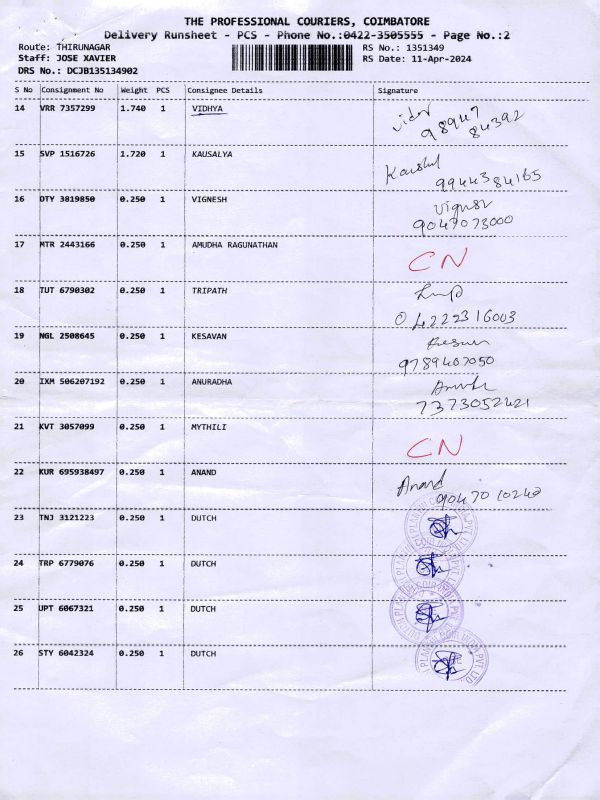 THE PROFESSIONAL COURIERS, COIMBATORE
Delivery Runsheet - PCS - Phone No.:0422-3505555 - Page No.:2
Route: THIRUNAGAR RS No.: 1351349
Staff: JOSE XAVIER RS Date: 11-Apr-2024
DRS No.: DCJB135134902
S No Consignment No Weight PCS Consignee Details Signature
14 VRR 7357299 1.740 1 VIDHYA
98947
84392
15 SVP 1516726 1.720 1 KAUSALYA
9944384165
16 DTY 3819850 0.250 1 VIGNESH
9047073000
17 MTR 2443166 0.250 1 AMUDHA RAGUNATHAN CN
18 TUT 6790302 0.250 1 TRIPATH
04222316003
19 NGL 2508645 0.250 1 KESAVAN
9789407050
20 IXM 506207192 0.250 1 ANURADHA
7373052421
21 KVT 3057099 0.250 1 MYTHILI CN
22 KUR 695938497 0.250 1 ANAND Anand
9047010240
23 TNJ 3121223 0.250 1 DUTCH
24 TRP 6779076 0.250 1 DUTCH
25 UPT 6067321 0.250 1 DUTCH
26 STY 6042324 0.250 1 DUTCH